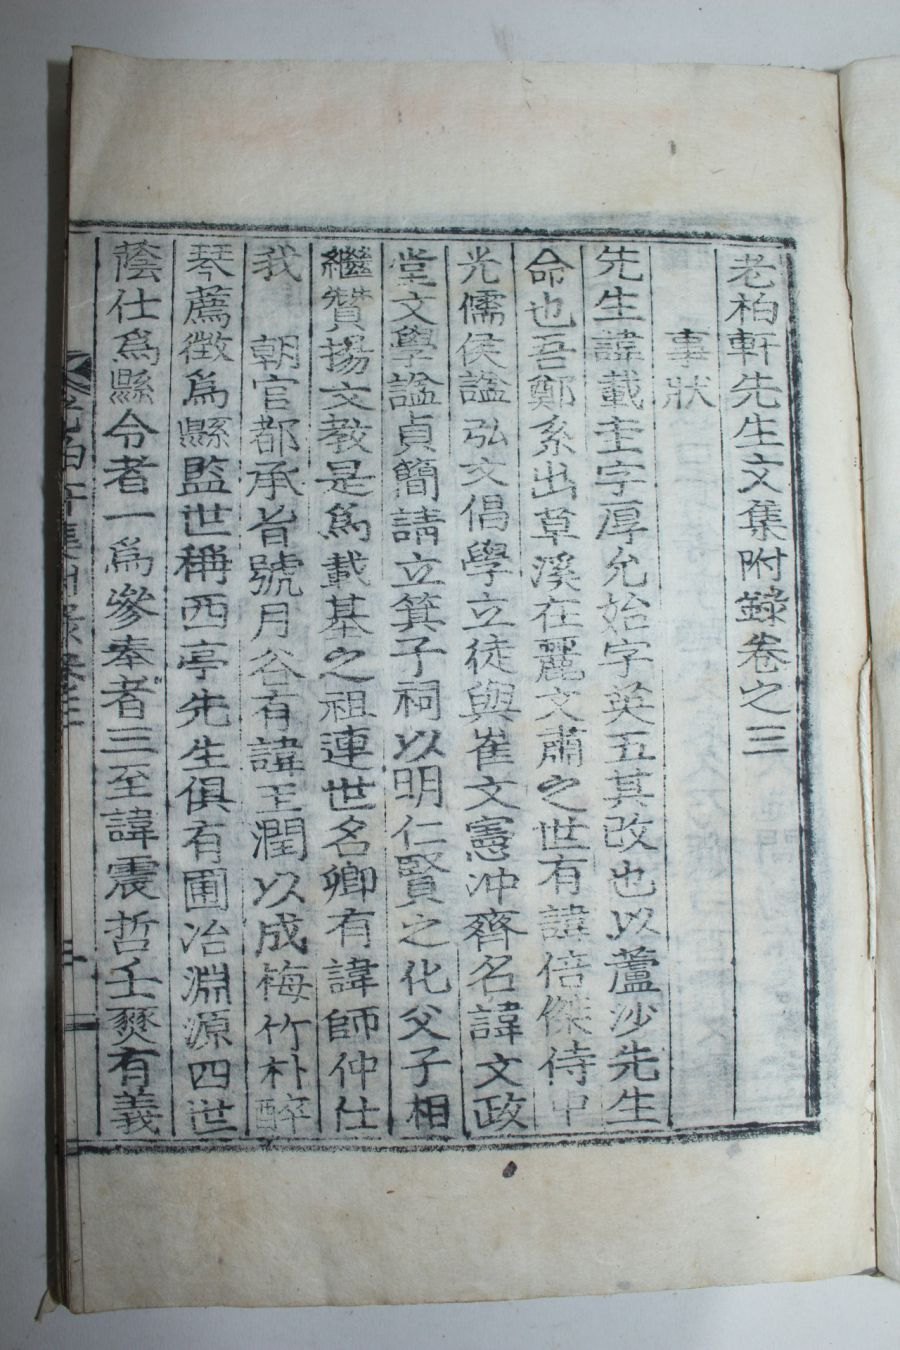 老柏軒先生文集附錄卷之三
事狀
先生諱載圭字厚允始字英五其改也以蘆沙先生
命也吾鄭系出草溪在麗文肅之世有諱倍傑侍中
光儒侯諡弘文倡學立徒與崔文憲冲齊名諱文政
堂文學諡貞簡請立箕子祠以明仁賢之化父子相
繼贊揚文教是爲載基之祖連世名卿有諱師仲仕
我　朝官都承旨號月谷有諱玉潤以成梅竹朴醉
琴薦徵爲縣監世稱西亭先生俱有圃冶淵源四世
蔭仕爲縣令者一爲參奉者三至諱震哲壬燹有義